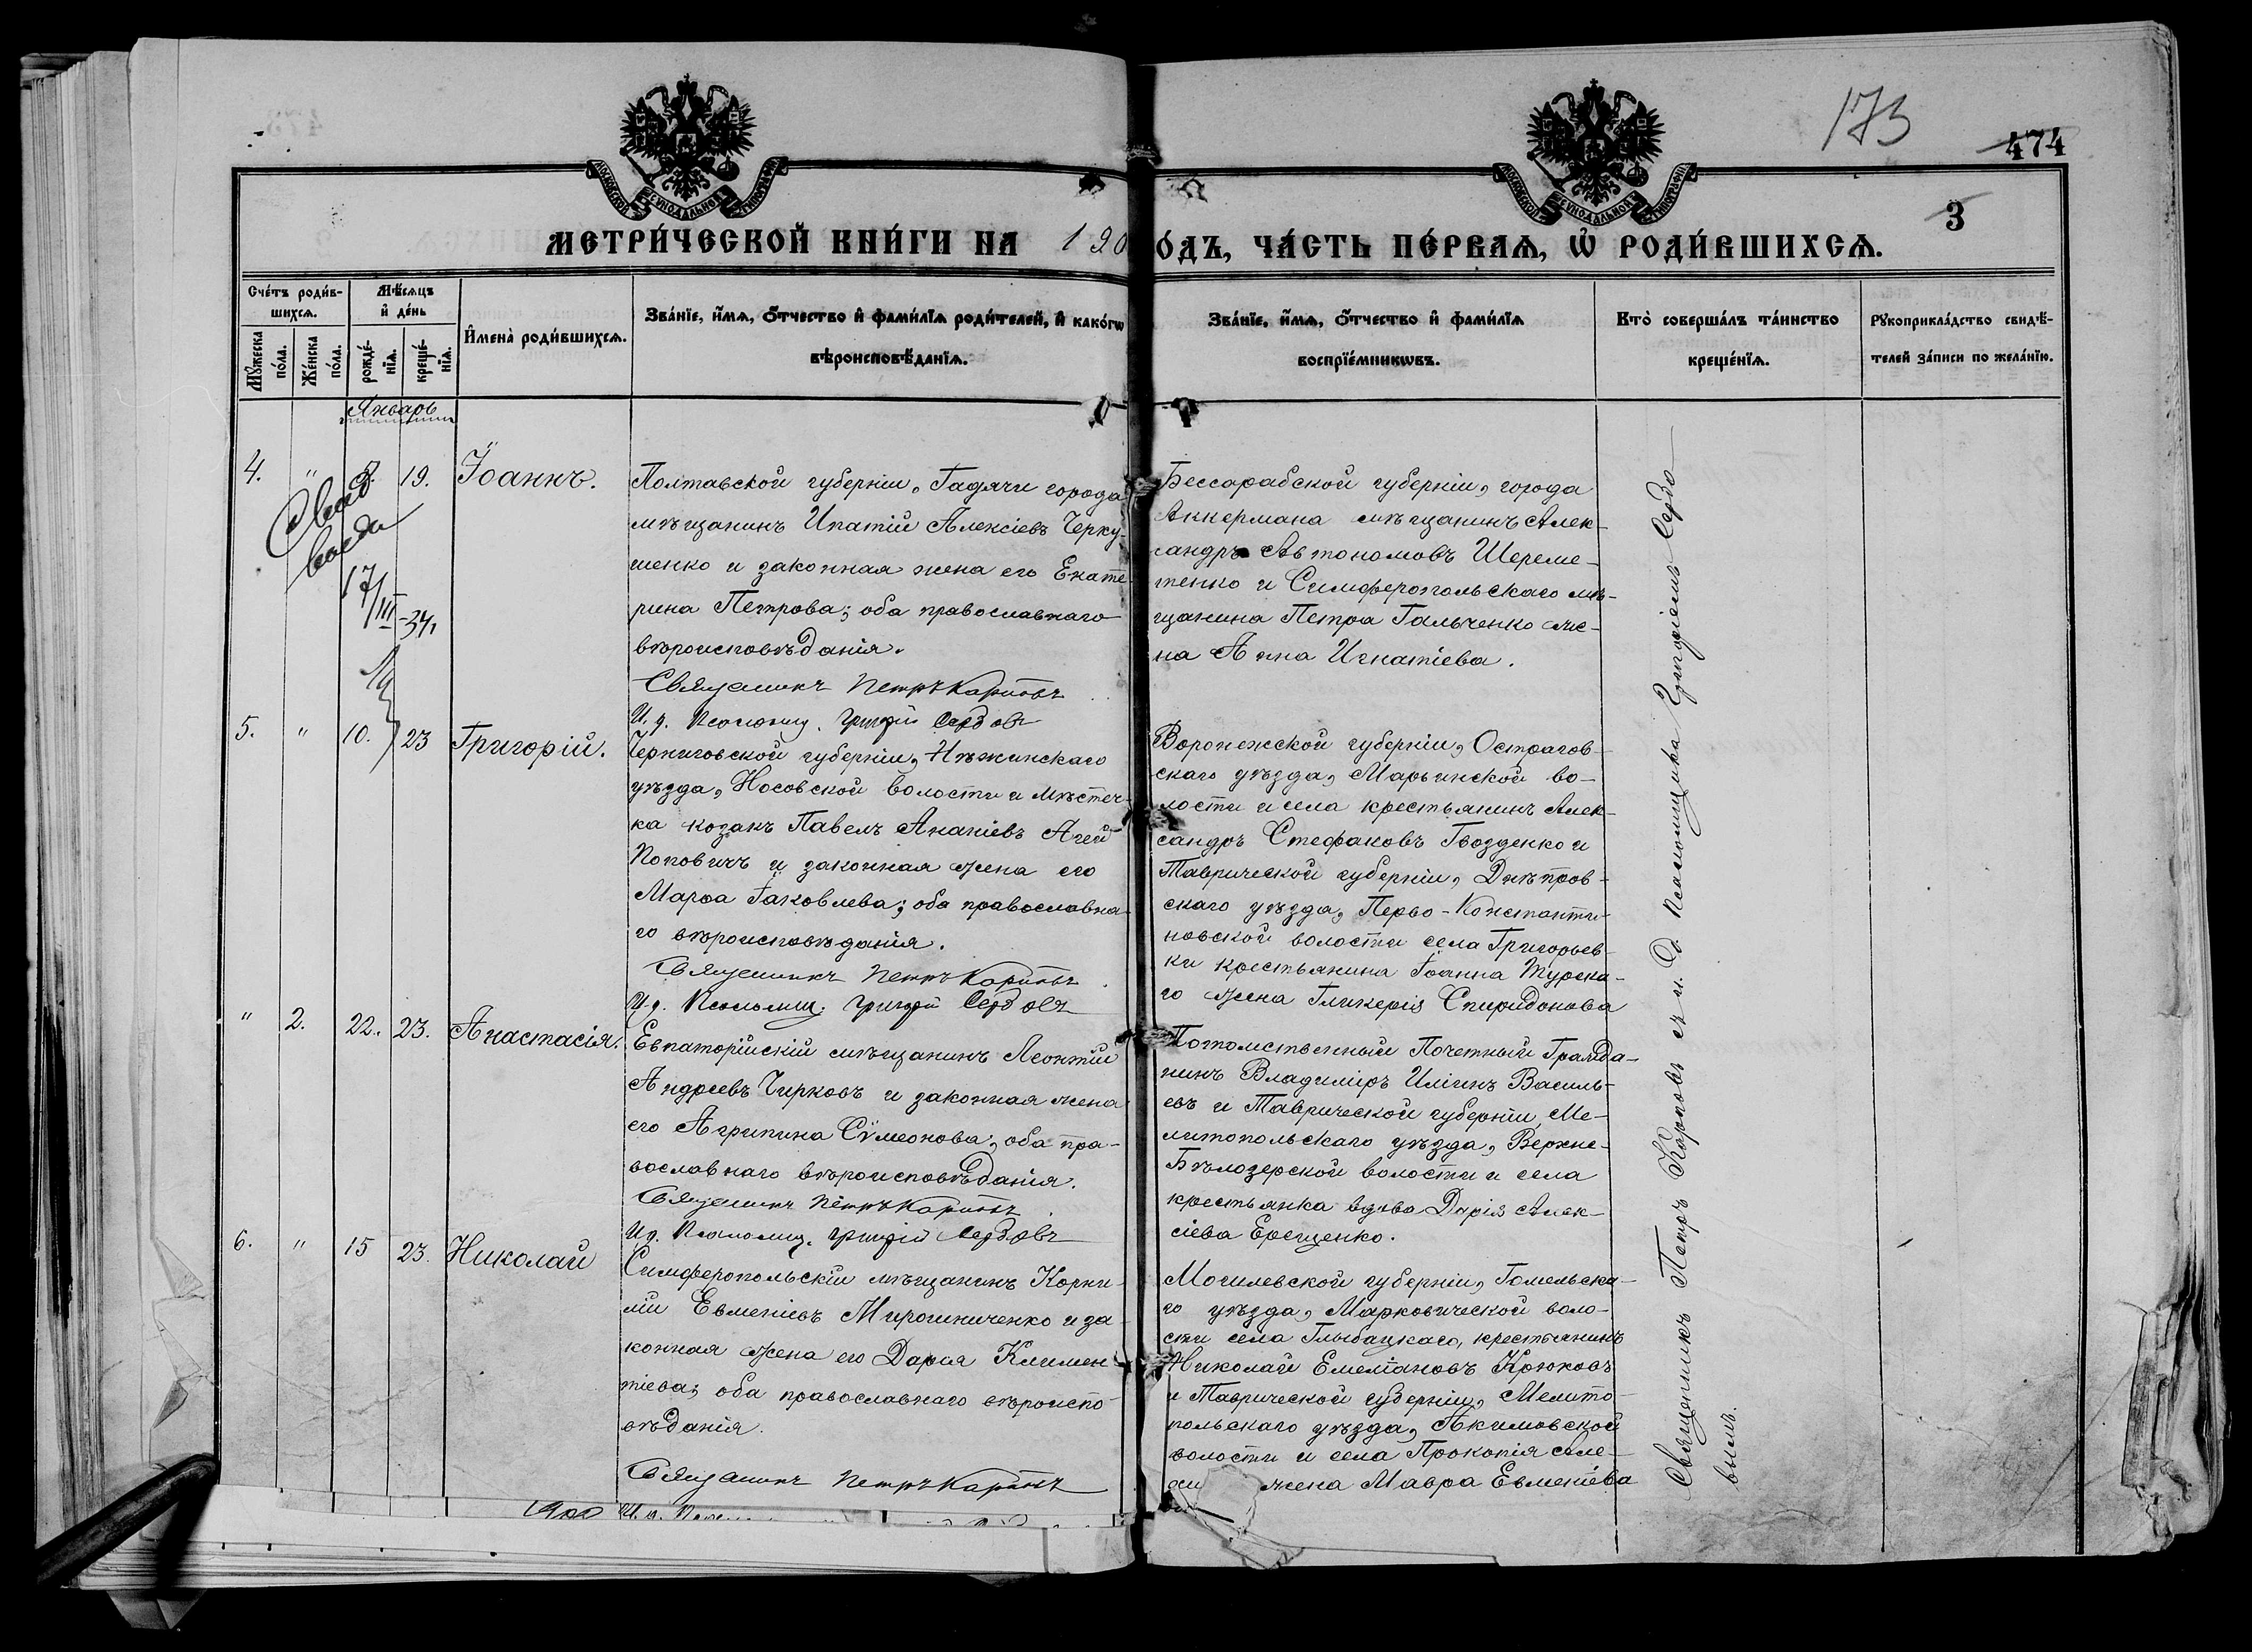 173
474
3
МОСКОВСКОЙ СѴНОДАЛЬНОЙ ТИПОГРАФІИ
МОСКОВСКОЙ СѴНОДАЛЬНОЙ ТИПОГРАФІИ
МЕТРИ́ЧЕСКОЙ КНИ́ГИ НА 190
О́ДЪ, ЧА́СТЬ ПЕ́РВАѦ, Ѡ҆ РОДИ́ВШИХСѦ.
Сче́тъ роди́в-
шихсѧ.
Мꙋ́жеска по́ла.
Же́нска по́ла.
Мѣ́сѧцъ
и҆ де́нь
рожде́-
нїѧ.
креще́-
нїѧ.
И҆мена̀ роди́вшихсѧ.
Зва́нїе, и҆́мѧ, ѻ҆́тчество и҆ фами́лїѧ роди́телей, и҆ како́гѡ
вѣроисповѣ́данїѧ.
Зва́нїе, и҆́мѧ, ѻ҆́тчество и҆ фами́лїѧ
воспрїе́мникѡвъ.
Кто̀ соверша́лъ та́инство
креще́нїѧ.
Рꙋкоприкла́дство свидѣ́-
телей за́писи по жела́нїю.
Январь
4. " 5. 19. Іоаннъ.
17/III-34
Полтавской губерніи, Гадячи города
мѣщанинъ Ипатій Алексіевъ Черку-
шенко и законная жена его Екате-
рина Петрова; оба православнаго
вѣроисповѣданія.
Священникъ Петръ Карповъ
И. д. Псаломщ. Григорій Сердовъ
Бессарабской губерніи, города
Аккермана мѣщанинъ Алек-
сандръ Автономовъ Шереме-
тенко и Симферопольскаго мѣ-
щанина Петра Гальченко же-
на Анна Игнатіева.
5. " 10. 23 Григорій.
Черниговской губерніи, Нѣжинскаго
уѣзда, Носовской волости и мѣстеч-
ка козакъ Павелъ Ананіевъ Агей
Поповичъ и законная жена его
Марѳа Іаковлева; оба православна-
го вѣроисповѣданія.
Священникъ Петръ Карповъ
И. д. Псаломщ. Григорій Сердовъ
Воронежской губерніи, Острагов-
скаго уѣзда, Марьинской во-
лости и села крестьянинъ Алек-
сандръ Стефановъ Гвозденко и
Таврической губерніи, Днѣпров-
скаго уѣзда, Перво-Константи-
новской волости села Григорьев-
ки крестьянина Іоанна Турска-
го жена Гликерія Спиридонова
" 2. 22. 23. Анастасія.
Евпаторійскій мѣщанинъ Леонтій
Андреевъ Чирковъ и законная жена
его Агрипина Сѵмеонова; оба пра-
вославнаго вѣроисповѣданія.
Священникъ Петръ Карповъ
И. д. Псаломщ. Григорій Сердовъ
Потомственный Почетный Гражда-
нинъ Владиміръ Иліинъ Василь-
евъ и Таврической губерніи, Ме-
литопольскаго уѣзда, Верхне-
Бѣлозерской волости и села
крестьянка вдова Дарія Алек-
сіева Ерещенко.
6. " 15 23. Николай
Симферопольскій мѣщанинъ Корни-
лій Евменіевъ Мирошниченко и за-
конная жена его Дарья Климен-
тіева; оба православнаго вѣроиспо-
вѣданія.
Священникъ Петръ Карповъ
Могилевской губерніи, Гомельска-
го уѣзда, Марковической воло-
сти села Глыбоцкаго, крестьянинъ
Николай Емеліановъ Крюковъ
и Таврической губерніи, Мелито-
польскаго уѣзда, Акимовской
волости и села Прокопія Але-
жена Мавра Евменіева
Священникъ Петръ Карповъ съ и. д. Псаломщика Григоріемъ Сердо-
вымъ.